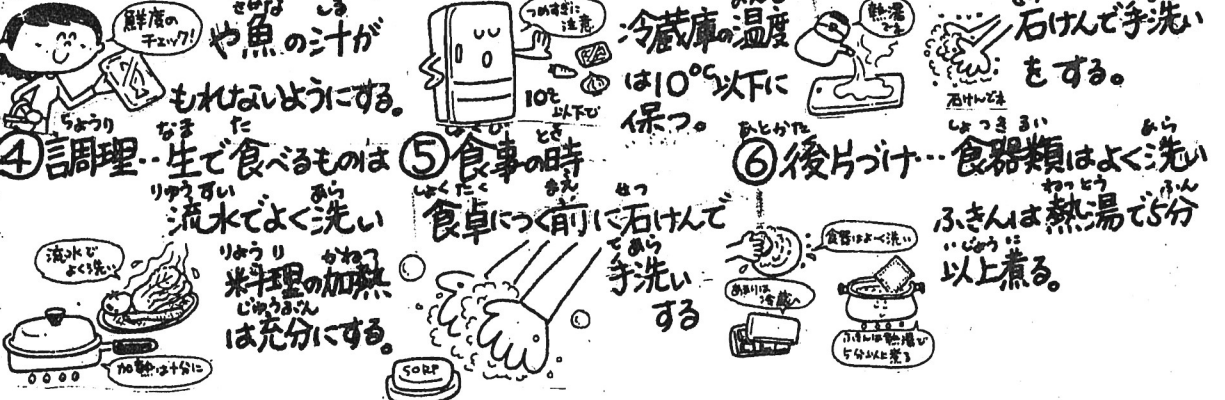 鮮度の
チェック!
や魚の汁が
もれないようにする。
つめすぎに
注意
10℃
以下で
冷蔵庫の温度
は10℃以下に
保つ。
熱湯
石けんで手洗い
をする。
④調理‥生で食べるものは
流水でよく洗い
料理の加熱
は充分にする。
流水で
よく洗い
加熱は十分に
⑤食事の時
食卓につく前に石けんで
手洗い
する
SOAP
⑥後片づけ…食器類はよく洗い
ふきんは熱湯で5分
以上煮る。
食器はよーく洗い
あまりは
冷蔵へ
ふきんは熱湯で
5分以上煮る